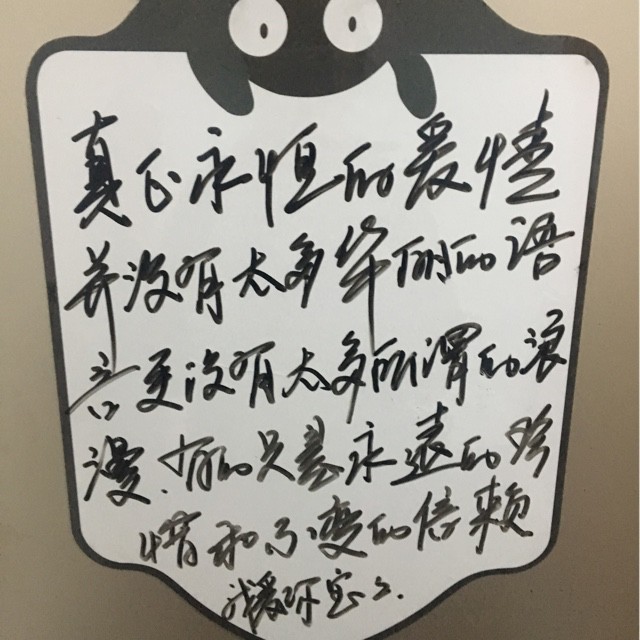 真正永恒的爱情
并没有太多华丽的语
言更没有太多所谓的浪
漫.有的只是永远的珍
惜和不变的信赖
我爱你宝..